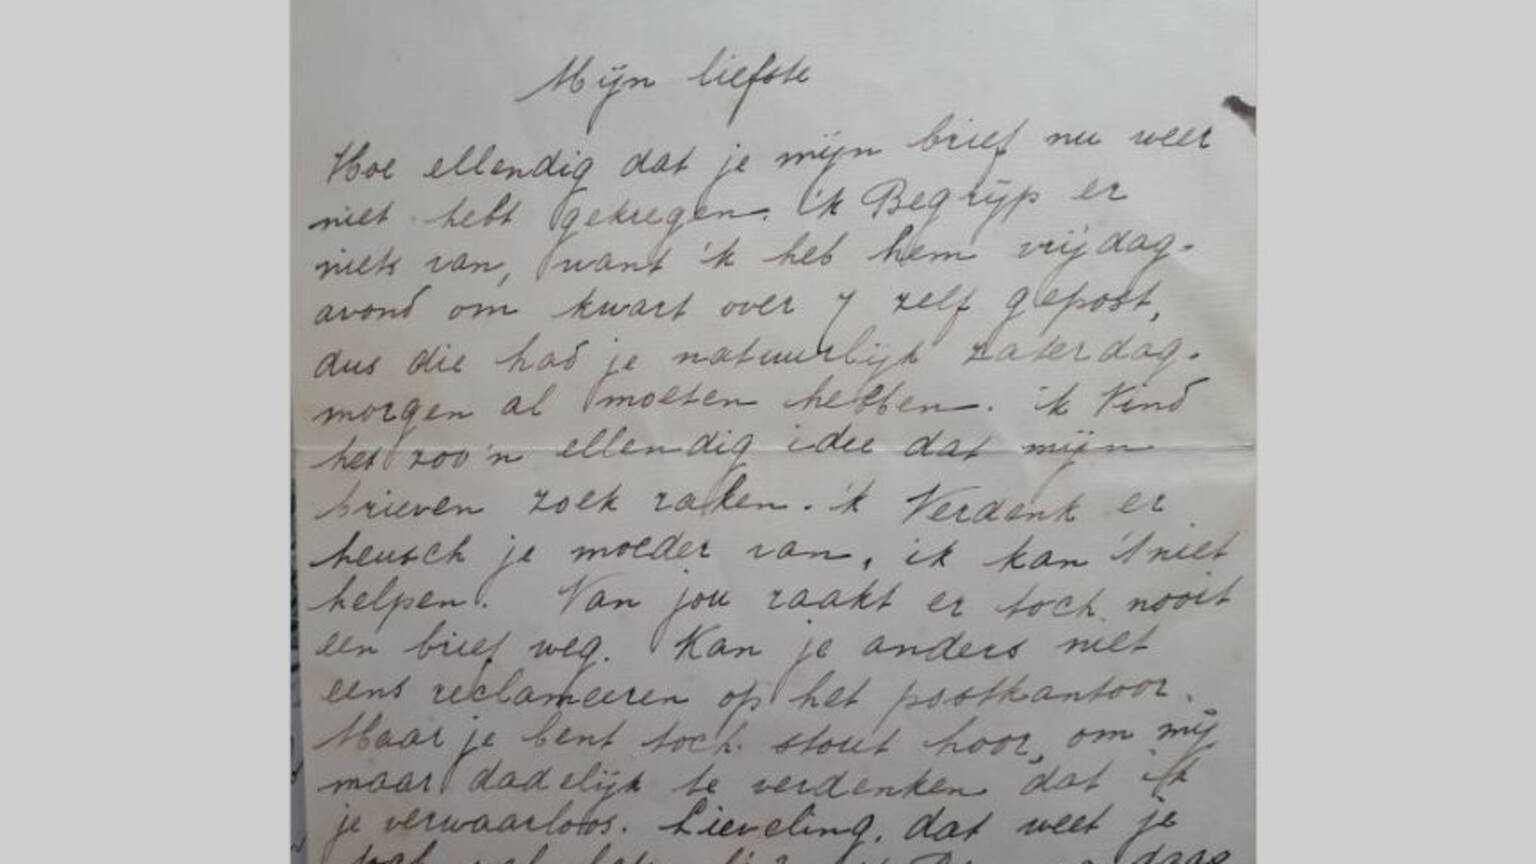 Mijn liefste
Hoe ellendig dat je mijn brief nu weer
niet hebt gekregen. ik Begrijp er
niets van, want 'k heb hem vrijdag-
avond om kwart over 7 zelf gepost,
dus die had je natuurlijk zaterdag-
morgen al moeten hebben. ik Vind
het zoo'n ellendig idee dat mijn
brieven zoek raken. 'k Verdenk er
heusch je moeder van, ik kan 't niet
helpen. Van jou raakt er toch nooit
een brief weg. Kan je anders niet
eens reclameeren op het postkantoor.
Maar je bent toch stout hoor, om mij
maar dadelijk te verdenken dat ik
je verwaarloos. Lieveling, dat weet je